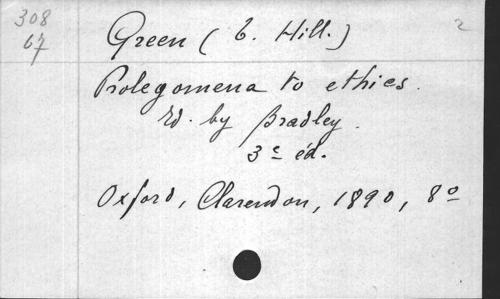 308
67
Green (T. Hill.)
2
Prolegomena to ethics.
Ed. by Bradley.
3e éd.
Oxford, Clarendon, 1890, 8º